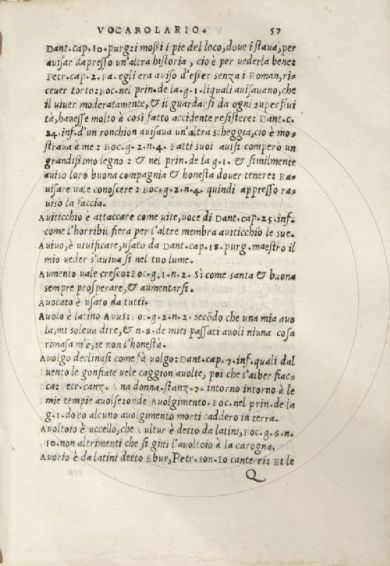 VOCABOLARIO. 57
Dant. cap. 10. purg: i mossi i pie del loco, doue i staua, per
auisar dapresso un'altra historia, cio è per uederla bene:
Petr. cap. 2. Fa. egli era auiso d'esser senza i Roman, ri‐
ceuer torto: Boc. nel prin. de la g. 1. liquali auisauano, che
il uiuer moderatamente, & il guardarsi da ogni superflui
tà, hauesse molto à così fatto accidente resistere: Dant. c.
24. inf. d'un ronchion auisaua un'altra scheggia, cio è mo‐
straua à me: Boc. g. 2. n. 4. Fatti suoi auisi comperò un
grandissimo legno: & nel prin. de la g. 1. & similmente
auiso loro buona compagnia & honesta douer tenere: Ra‐
uisare uale conoscere: Boc. g. 2. n. 4. quindi appresso ra‐
uiso la faccia.
Auiticchio è attaccare come uite, uoce di Dant. cap. 25. inf.
come l'horribil fiera per l'altre membra auiticchio le sue.
Auiuo, è uiuificare, usato da Dant. cap. 18. purg. maestro il
mio ueder s'auiua sì nel tuo lume.
Aumento uale cresco: Boc. g. 1. n. 2. Si come santa & buona
sempre prosperare, & aumentarsi.
Auocato è usato da tutti.
Auolo è latino Auus: Boc. g. 2. n. 2. secõdo che una mia auo
la, mi soleua dire, & n. 8. de miei passati auoli niuna cosa
rimasa m'è, se non l'honestà.
Auolgo declinasi come fà uolgo: Dant. cap. 7. inf. quali dal
uento le gonfiate uele caggion auolte, poi che l'alber fiac‐
ca: Petr. canz. Una donna. stanz. 7. intorno intorno à le
mie tempie auolse: onde Auolgimento. Boc. nel prin. de la
g. 1. dopo alcuno auolgimento morti caddero in terra.
Auoltoio è uccello, che Vultur è detto da latini, Boc. g. 6. n.
10. non altrimenti che si gitti l'auoltoio à la carogna.
Auorio è da latini detto Ebur, Petr. son. Io canterei: Et le
Q